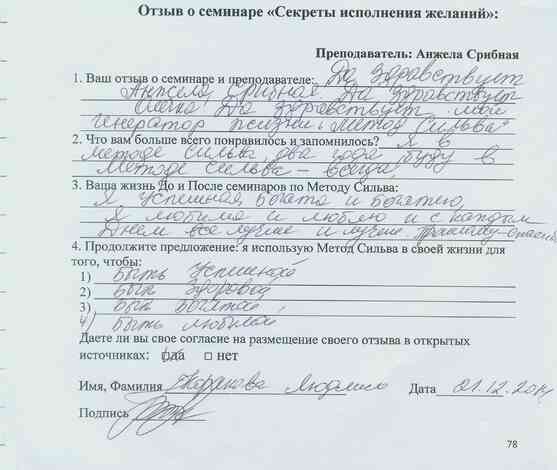 Отзыв о семинаре «Секреты исполнения желаний»:
Преподаватель: Анжела Срибная
1. Ваш отзыв о семинаре и преподавателе: Да здравствует
Анжела Срибная Да здравствует
Да здравствует мой
генератор жизни "Метод Сильва"
2. Что вам больше всего понравилось и запомнилось? Я в
методе Сильва два года буду в
Методе Сильва – всегда.
3. Ваша жизнь До и После семинаров по Методу Сильва:
Я успешная, богата и
Я любима и люблю и с каждым
Днем все лучше и лучше.
4. Продолжите предложение: я использую Метод Сильва в своей жизни для
того, чтобы:
1) Быть успешной
2) Быть здоровой
3) Быть богатой
4) Быть любимой
Даете ли вы свое согласие на размещение своего отзыва в открытых
источниках: □да □ нет
Имя, Фамилия Людмила Дата 01.12.2014
Подпись
78